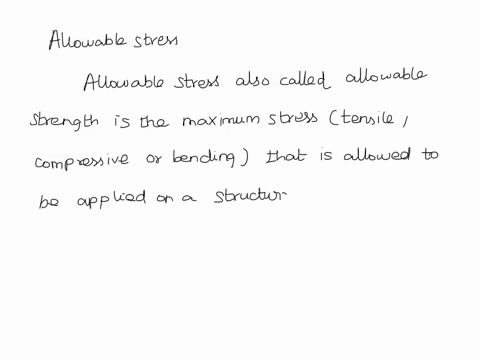 Allowable stress
Allowable stress also called allowable
strength is the maximum stress (tensile,
compressive or bending) that is allowed to
be applied on a structur